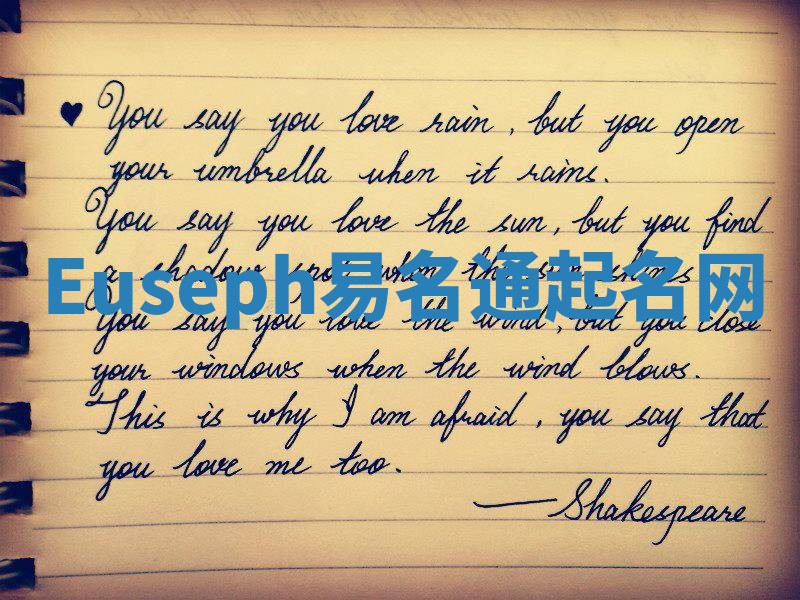 ♥ You say you love rain, but you open
your umbrella when it rains.
You say you love the sun, but you find
a shadow spot when the sun shines
Euseph易名通起名网
You say you love the wind, but you close
your windows when the wind blows.
This is why I am afraid, you say that
you love me too.
— Shakespeare